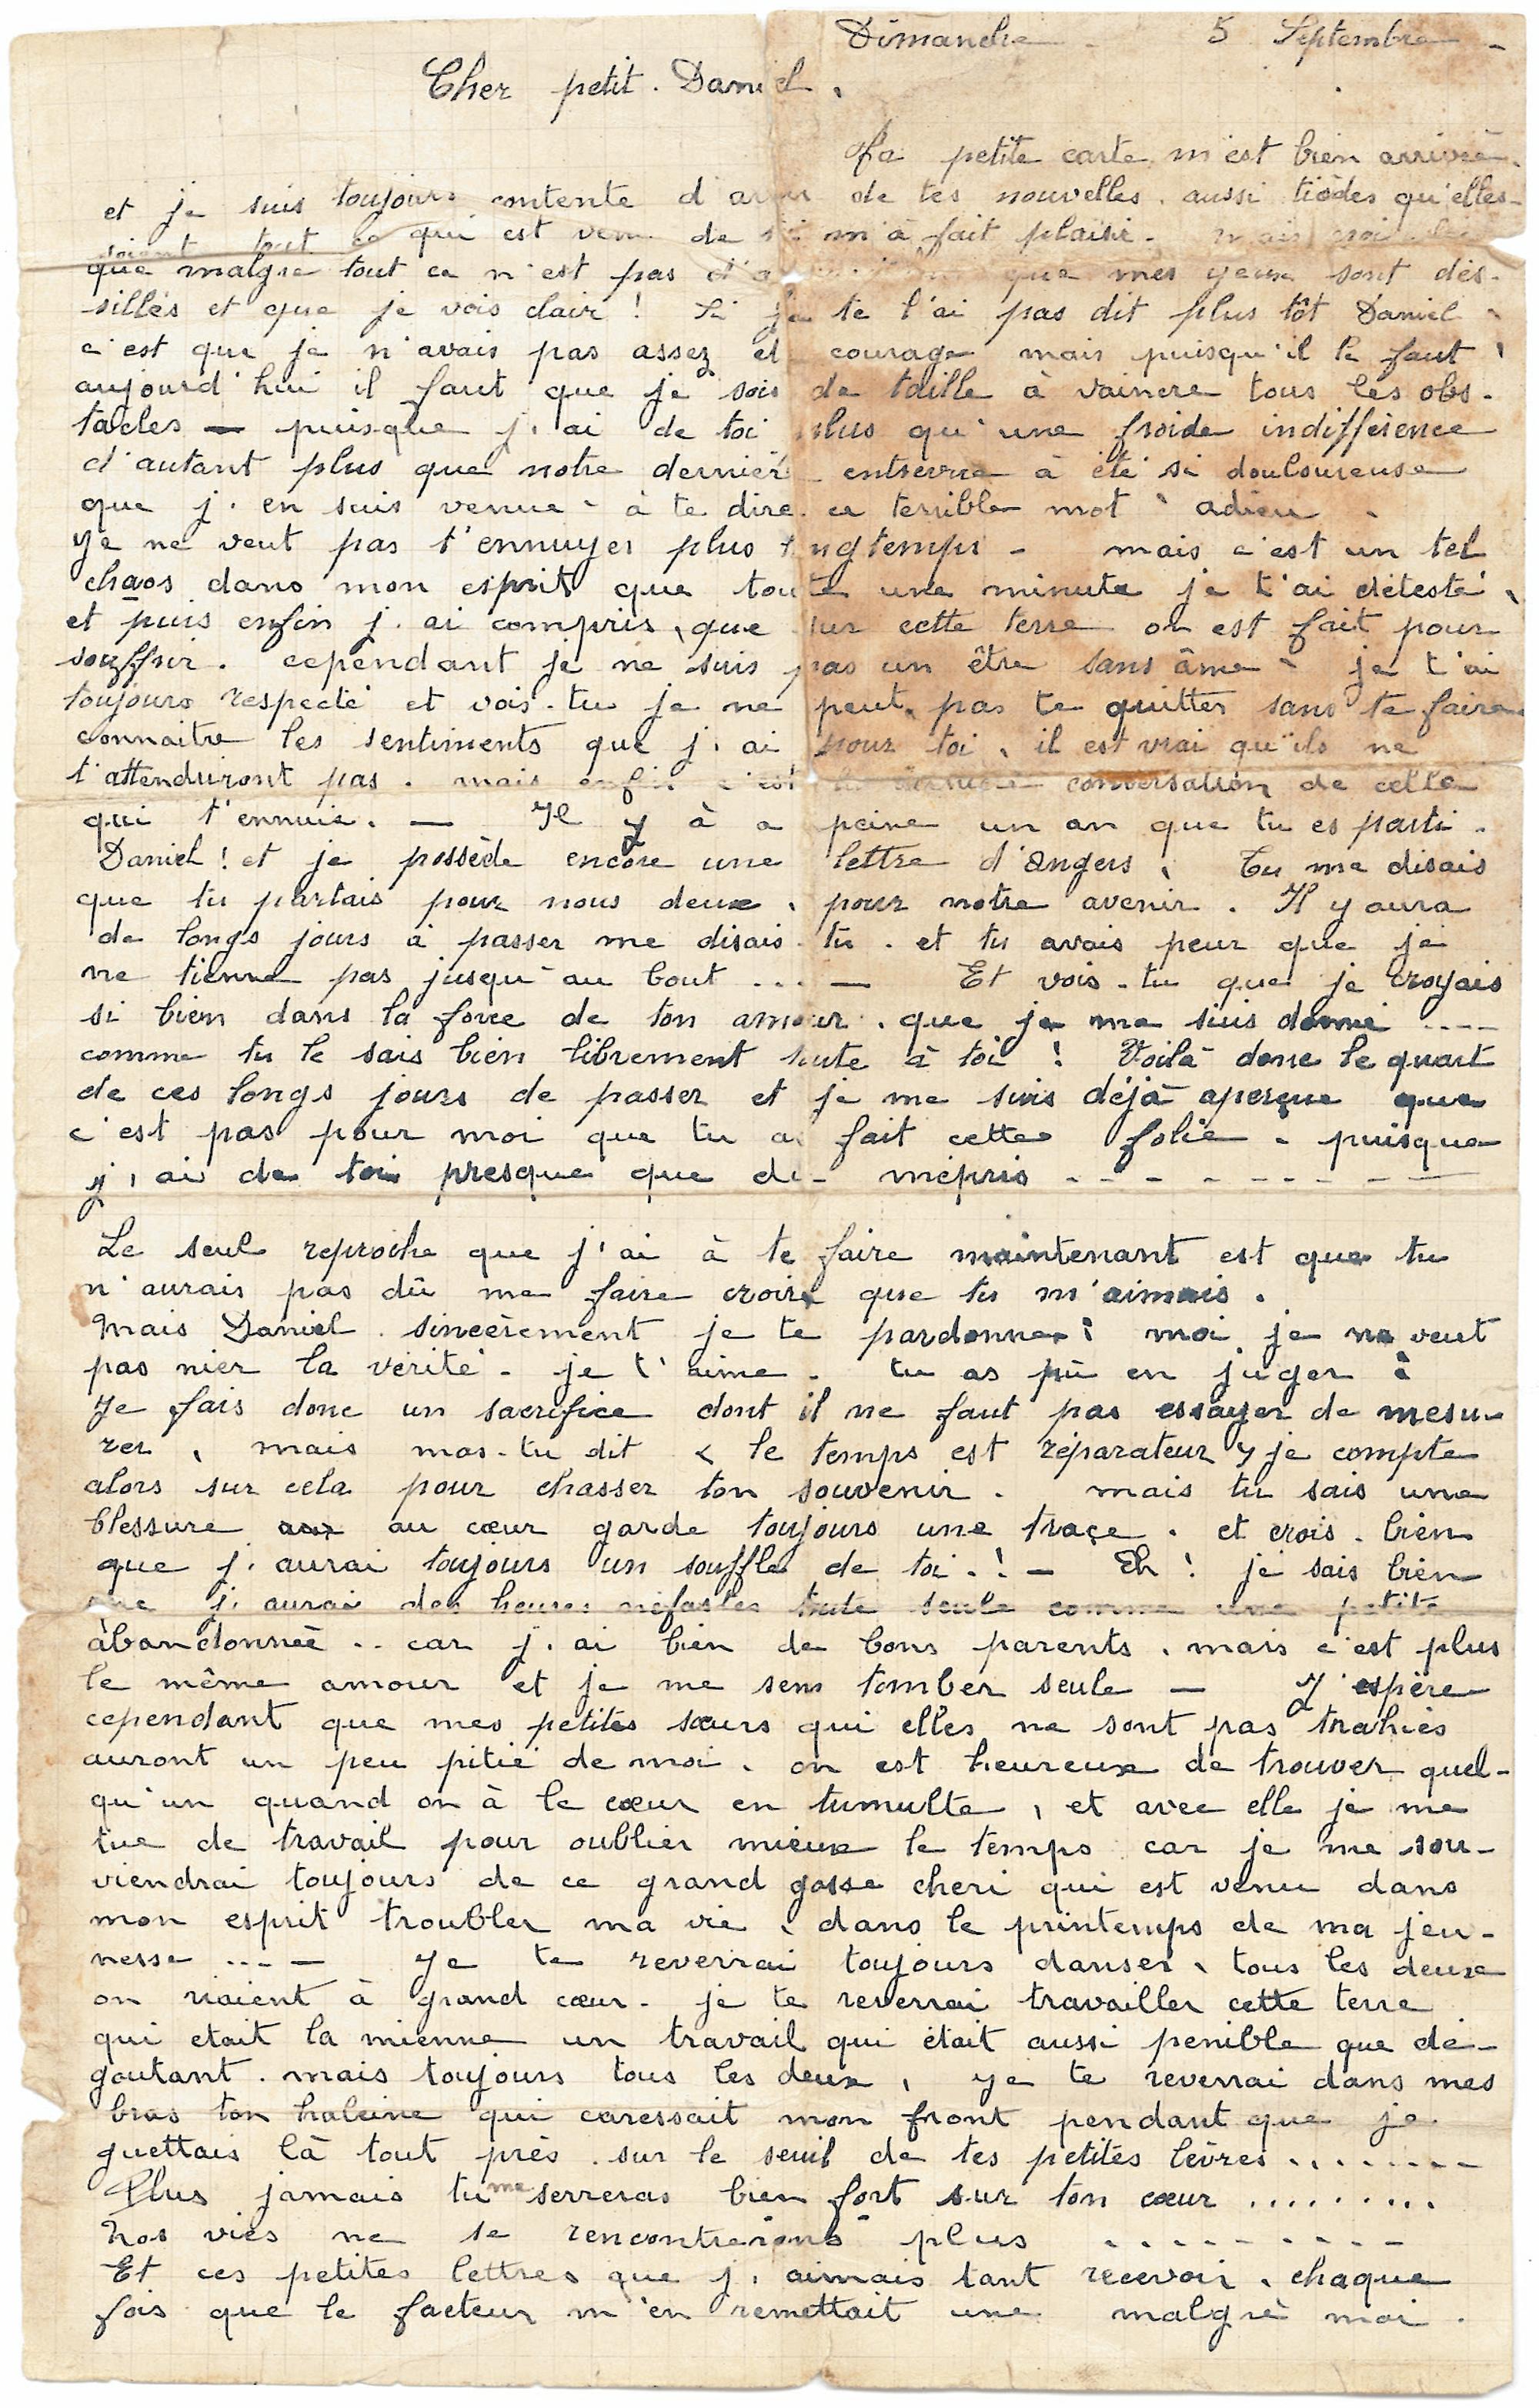 Dimanche - 5 Septembre -
Cher petit. Daniel,
Ta petite carte m'est bien arrivée.
et je suis toujours contente d'avoir de tes nouvelles. aussi tièdes qu'elles
soient tout ce qui est venu de toi m'à fait plaisir. mais
que malgré tout ce n'est pas que mes yeux sont dés-
sillés et que je vois clair! Si je te l'ai pas dit plus tôt Daniel,
c'est que je n'avais pas assez de courage mais puisqu'il le faut,
aujourd'hui il faut que je sois de taille à vaincre tous les obs-
tacles — puisque j'ai de toi plus qu'une froide indifférence
d'autant plus que notre dernière entrevue à été si douloureuse
que j'en suis venue - à te dire ce terrible mot " adieu .
Je ne veut pas t'ennuyer plus longtemps - mais c'est un tel
chaos dans mon esprit que toute une minute je t'ai détesté,
et puis enfin j'ai compris, que sur cette terre on est fait pour
souffrir. cependant je ne suis pas un être sans âme - je t'ai
toujours respecté et vois-tu je ne peut pas te quitter sans te faire
connaitre les sentiments que j'ai pour toi, il est vrai qu'ils ne
t'attendriront pas. mais enfin c'est la dernière conversation de celle
qui t'ennuie. — Il y à a peine un an que tu es parti.
Daniel! et je possède encore une lettre d'Angers, Tu me disais
que tu partais pour nous deux, pour notre avenir. Il y aura
de longs jours à passer me disais-tu. et tu avais peur que je
ne tienne pas jusqu'au bout ... — Et vois-tu que je croyais
si bien dans la force de ton amour. que je me suis donné ----
comme tu le sais bien librement toute à toi! Voilà donc le quart
de ces longs jours de passer et je me suis déjà aperçue que
c'est pas pour moi que tu as fait cette folie - puisque
j'ai de toi presque que du mépris - - - - - - - - -
Le seul reproche que j'ai à te faire maintenant est que tu
n'aurais pas dû me faire croire que tu m'aimais.
Mais Daniel. sincèrement je te pardonne! moi je ne veut
pas nier la vérité - je t'aime - tu as pû en juger à
Je fais donc un sacrifice dont il ne faut pas essayer de mesu-
rer, mais mas-tu dit « le temps est réparateur » je compte
alors sur cela pour chasser ton souvenir. mais tu sais une
blessure au cœur garde toujours une trace. et crois-bien
que j'aurai toujours un souffle de toi.! — Eh! je sais bien
que j'aurai des heures néfastes toute seule comme une petite
àbandonnée .. car j'ai bien de bons parents, mais c'est plus
le même amour et je me sens tomber seule — J'espère
cependant que mes petites sœurs qui elles ne sont pas trahies
auront un peu pitié de moi. on est heureux de trouver quel-
qu'un quand on à le cœur en tumulte, et avec elle je me
tue de travail pour oublier mieux le temps car je me sou-
viendrai toujours de ce grand gosse cheri qui est venu dans
mon esprit troubler ma vie, dans le printemps de ma jeu-
nesse ... — Je te reverrai toujours danser, tous les deux
on riaient à grand cœur - je te reverrai travailler cette terre
qui etait la mienne un travail qui était aussi penible que dé-
goutant. mais toujours tous les deux, je te reverrai dans mes
bras ton haleine qui caressait mon front pendant que je
guettais là tout près. sur le seuil de tes petites lèvres ........
Plus jamais tu me serreras bien fort sur ton cœur .........
Nos vies ne se rencontrerons plus . - - - - - - - -
Et ces petites lettres que j'aimais tant recevoir, chaque
fois que le facteur m'en remettait une malgré moi.